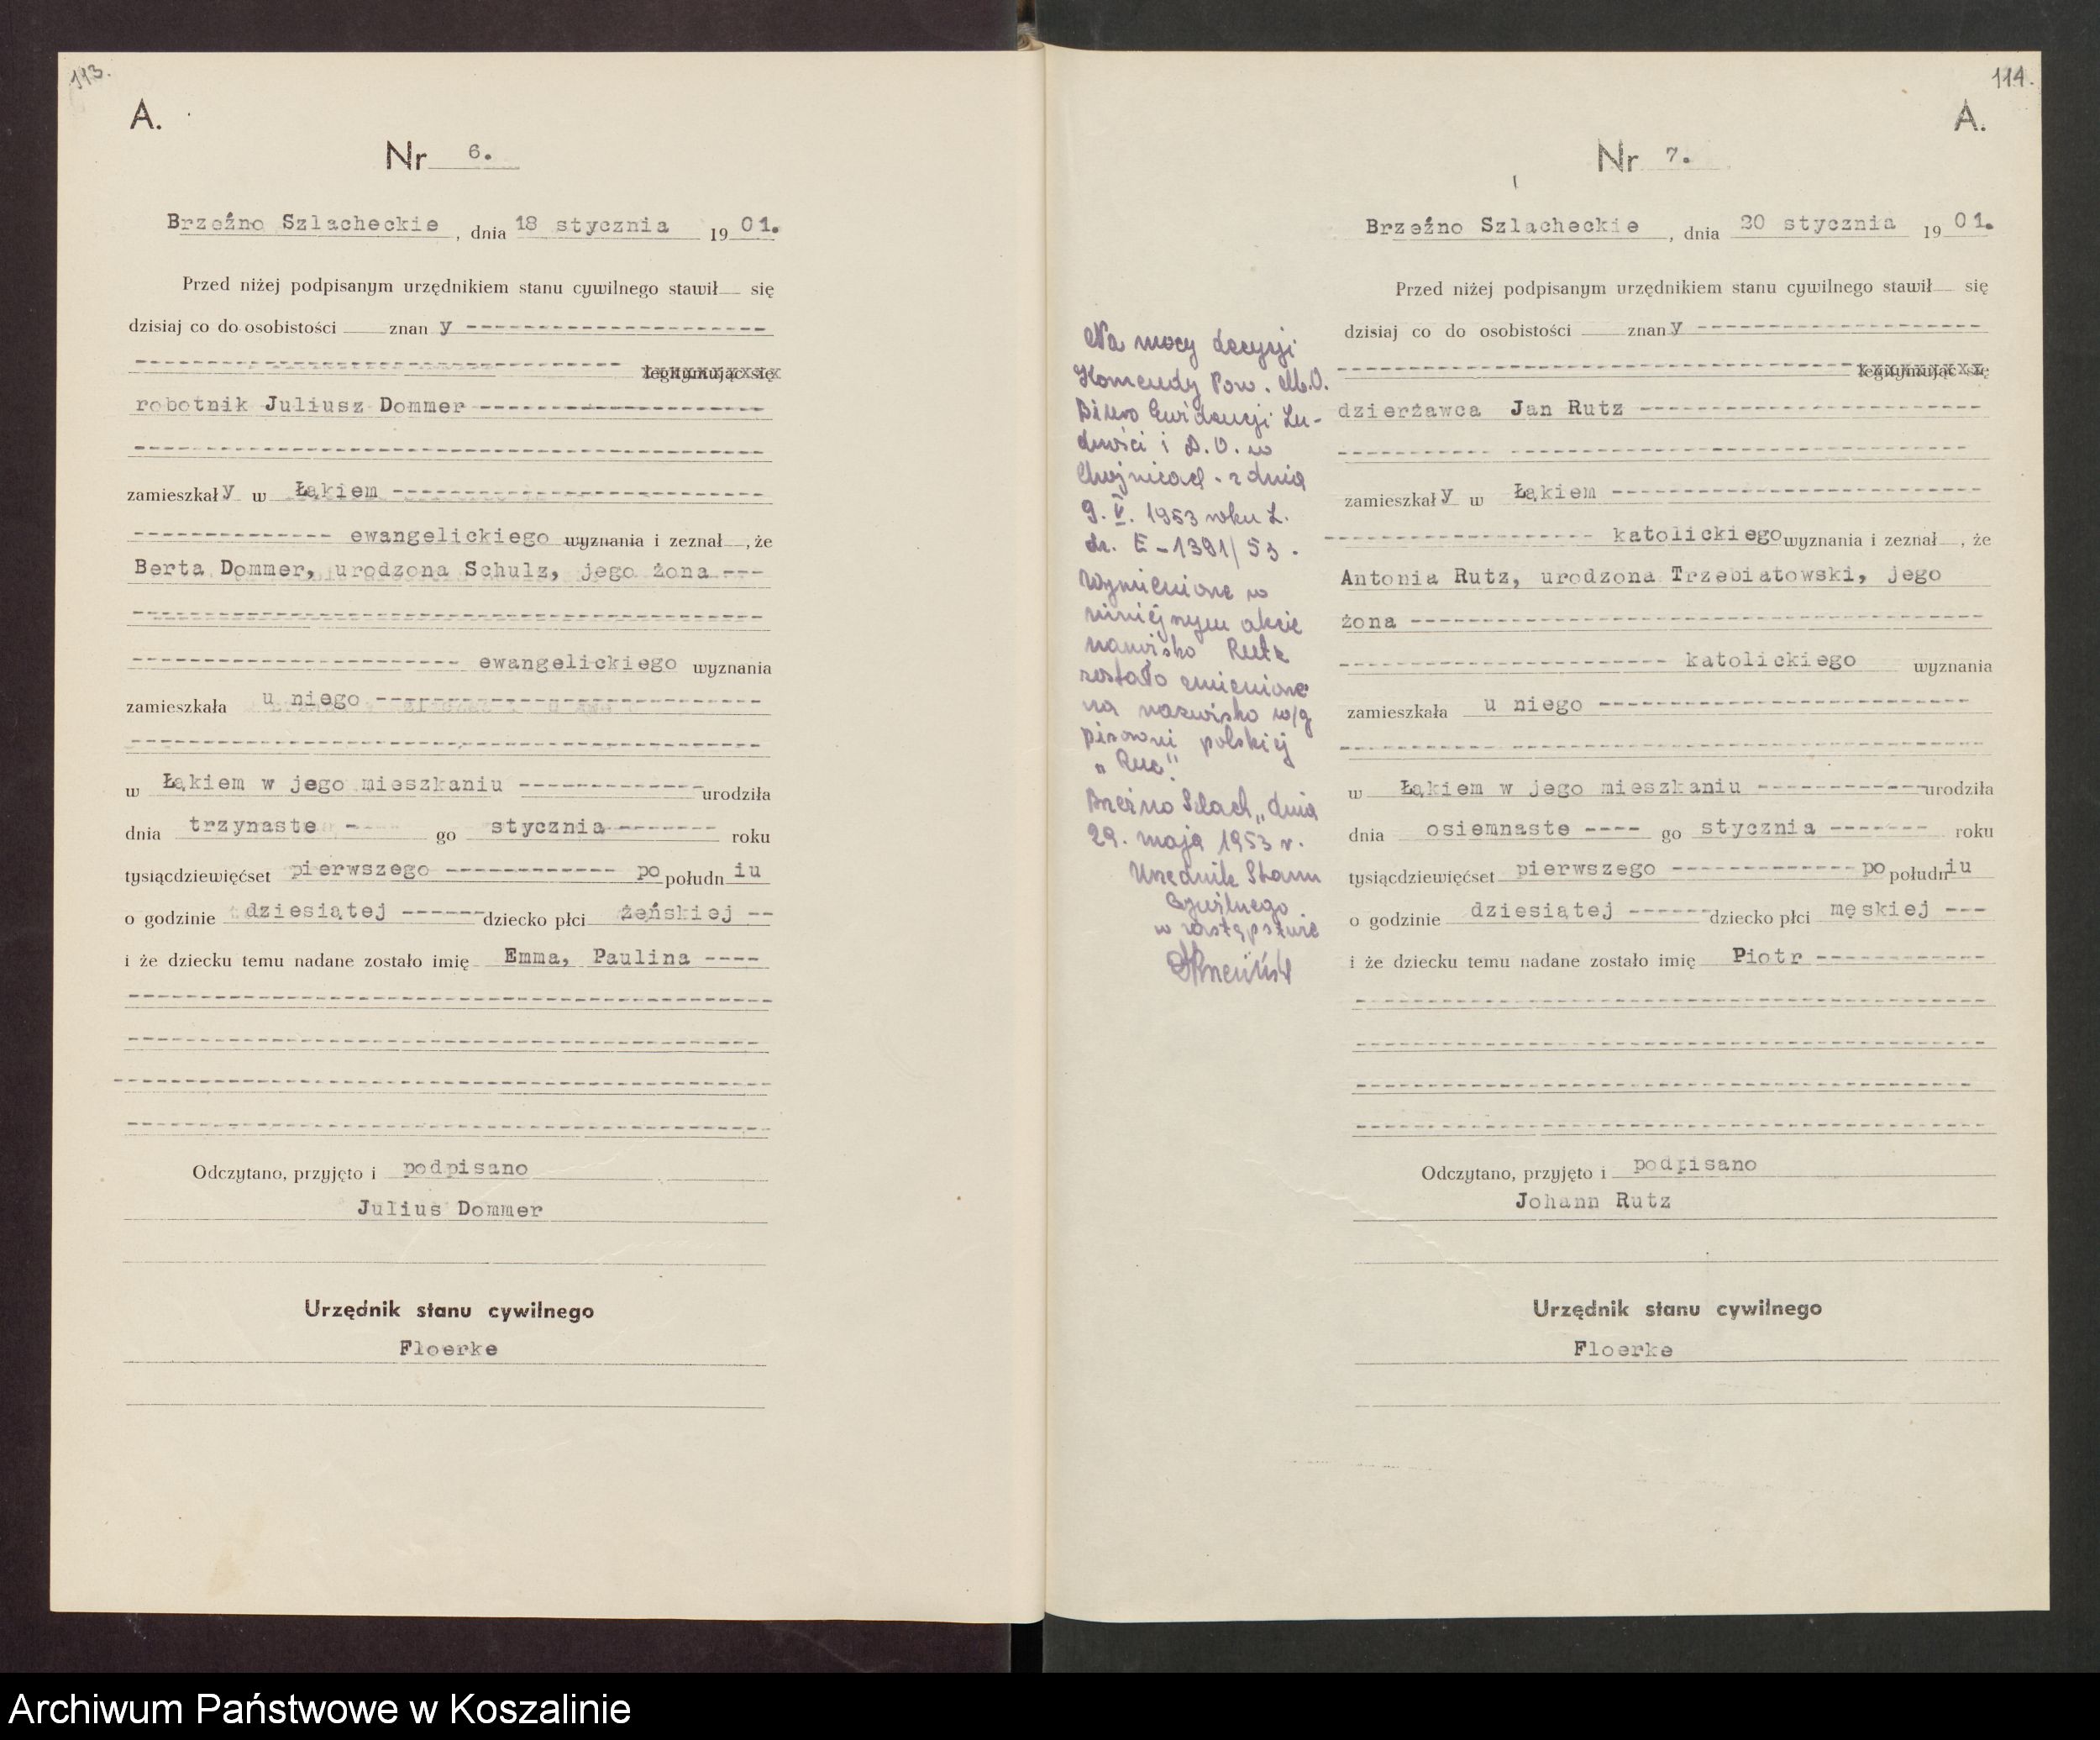 113.
A.
Nr 6.
Brzeźno Szlacheckie, dnia 18 stycznia 1901.
Przed niżej podpisanym urzędnikiem stanu cywilnego stawił się
dzisiaj co do osobistości znan y
legitymując się
robotnik Juliusz Dommer
zamieszkał y w Łąkiem
ewangelickiego wyznania i zeznał, że
Berta Dommer, urodzona Schulz, jego żona
ewangelickiego wyznania
zamieszkała u niego
w Łąkiem w jego mieszkaniu urodziła
dnia trzynaste - go stycznia roku
tysiącdziewięćset pierwszego po południu
o godzinie dziesiątej dziecko płci żeńskiej
i że dziecku temu nadane zostało imię Emma, Paulina
Odczytano, przyjęto i podpisano
Julius Dommer
Urzędnik stanu cywilnego
Floerke
114.
A.
Nr 7.
Brzeźno Szlacheckie, dnia 20 stycznia 1901.
Przed niżej podpisanym urzędnikiem stanu cywilnego stawił się
dzisiaj co do osobistości znan y
legitymując się
dzierżawca Jan Rutz
zamieszkał y w Łąkiem
katolickiego wyznania i zeznał, że
Antonia Rutz, urodzona Trzebiatowski, jego
żona
katolickiego wyznania
zamieszkała u niego
w Łąkiem w jego mieszkaniu urodziła
dnia osiemnaste go stycznia roku
tysiącdziewięćset pierwszego po południu
o godzinie dziesiątej dziecko płci męskiej
i że dziecku temu nadane zostało imię Piotr
Odczytano, przyjęto i podpisano
Johann Rutz
Urzędnik stanu cywilnego
Floerke
Na mocy decyzji
Komendy Pow. M.O.
Biuro Ewidencji Lu-
dności i D.O. w
Chojnicach z dnia
9. V. 1953 roku L.
dz. E-1391/53.
Wymienione w
niniejszym akcie
nazwisko Rutz
zostało zmienione
na nazwisko w/g
pisowni polskiej
„Ruc".
Brzeźno Szlach., dnia
29. maja 1953 r.
Urzędnik Stanu
Cywilnego
w zastępstwie
Archiwum Państwowe w Koszalinie